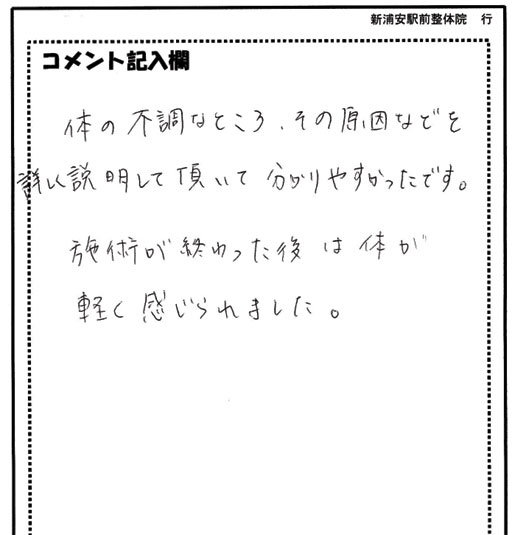 新浦安駅前整体院　行
コメント記入欄
体の不調なところ、その原因などを
詳しく説明して頂いて 分かりやすかったです。
施術が終わった後は体が
軽く感じられました。